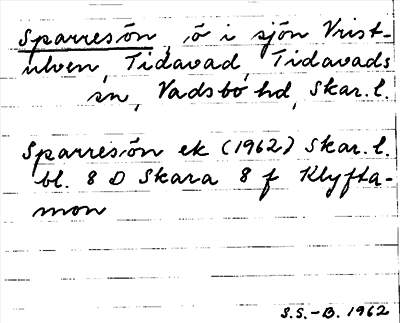 Sparresön, ö i sjön Vrist-
ulven, Tidavad, Tidavads
sn, Vadsbo hd, Skar. l.
Sparresön ek (1962) Skar. l.
bl. 8 D Skara 8 f Klyfta-
mon
S.S.-B. 1962